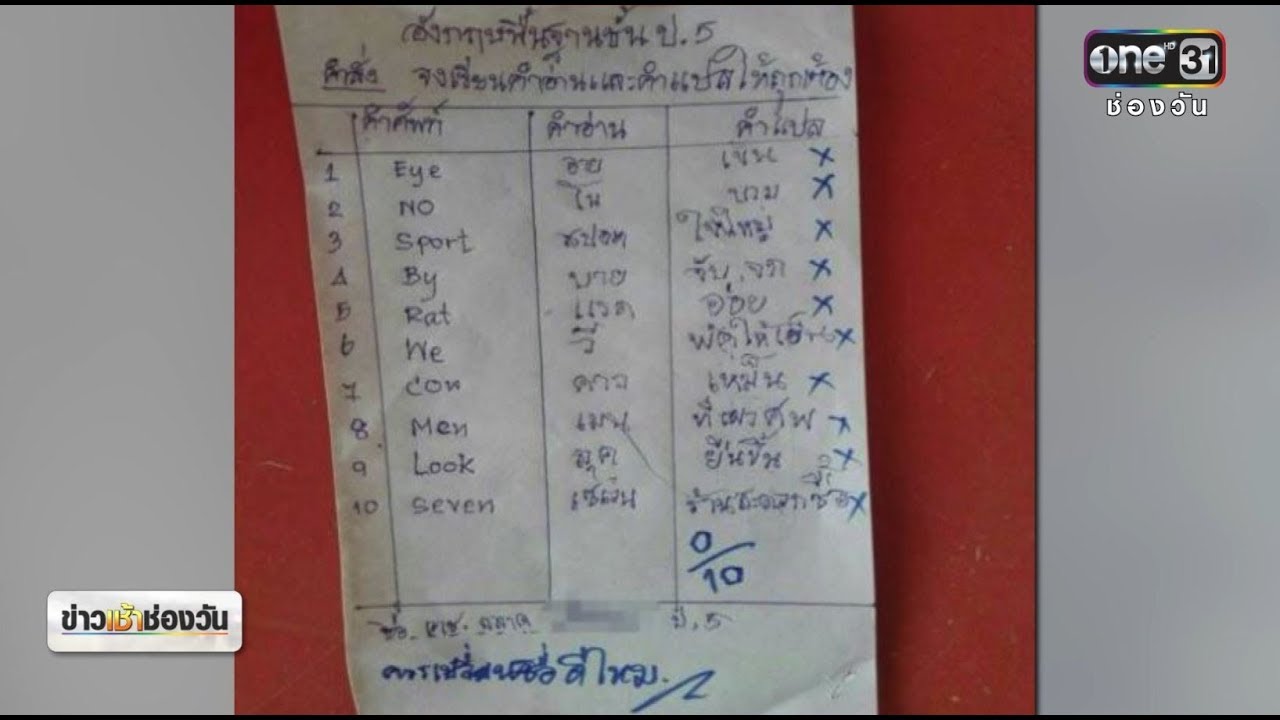 one HD 31
ช่องวัน
อังกฤษพื้นฐานชั้น ป.5
คำสั่ง จงเขียนคำอ่านและคำแปลให้ถูกต้อง
คำศัพท์ คำอ่าน คำแปล
1 Eye อาย เขิน ×
2 NO โน บวม ×
3 Sport สปอต ใจใหญ่ ×
4 By บาย จับ, จก ×
5 Rat แรต อ่อย ×
6 We วี พัดให้เย็น ×
7 Con คาว เหม็น ×
8 Men เมน ที่เผาศพ ×
9 Look ลุค ยืนขึ้น ×
10 Seven เซเว่น ร้านสะดวกซื้อ ×
0/10
ชื่อ ด.ช. ฉลาด ป.5
ควรเปลี่ยนชื่อดีไหม.
ข่าวเช้าช่องวัน